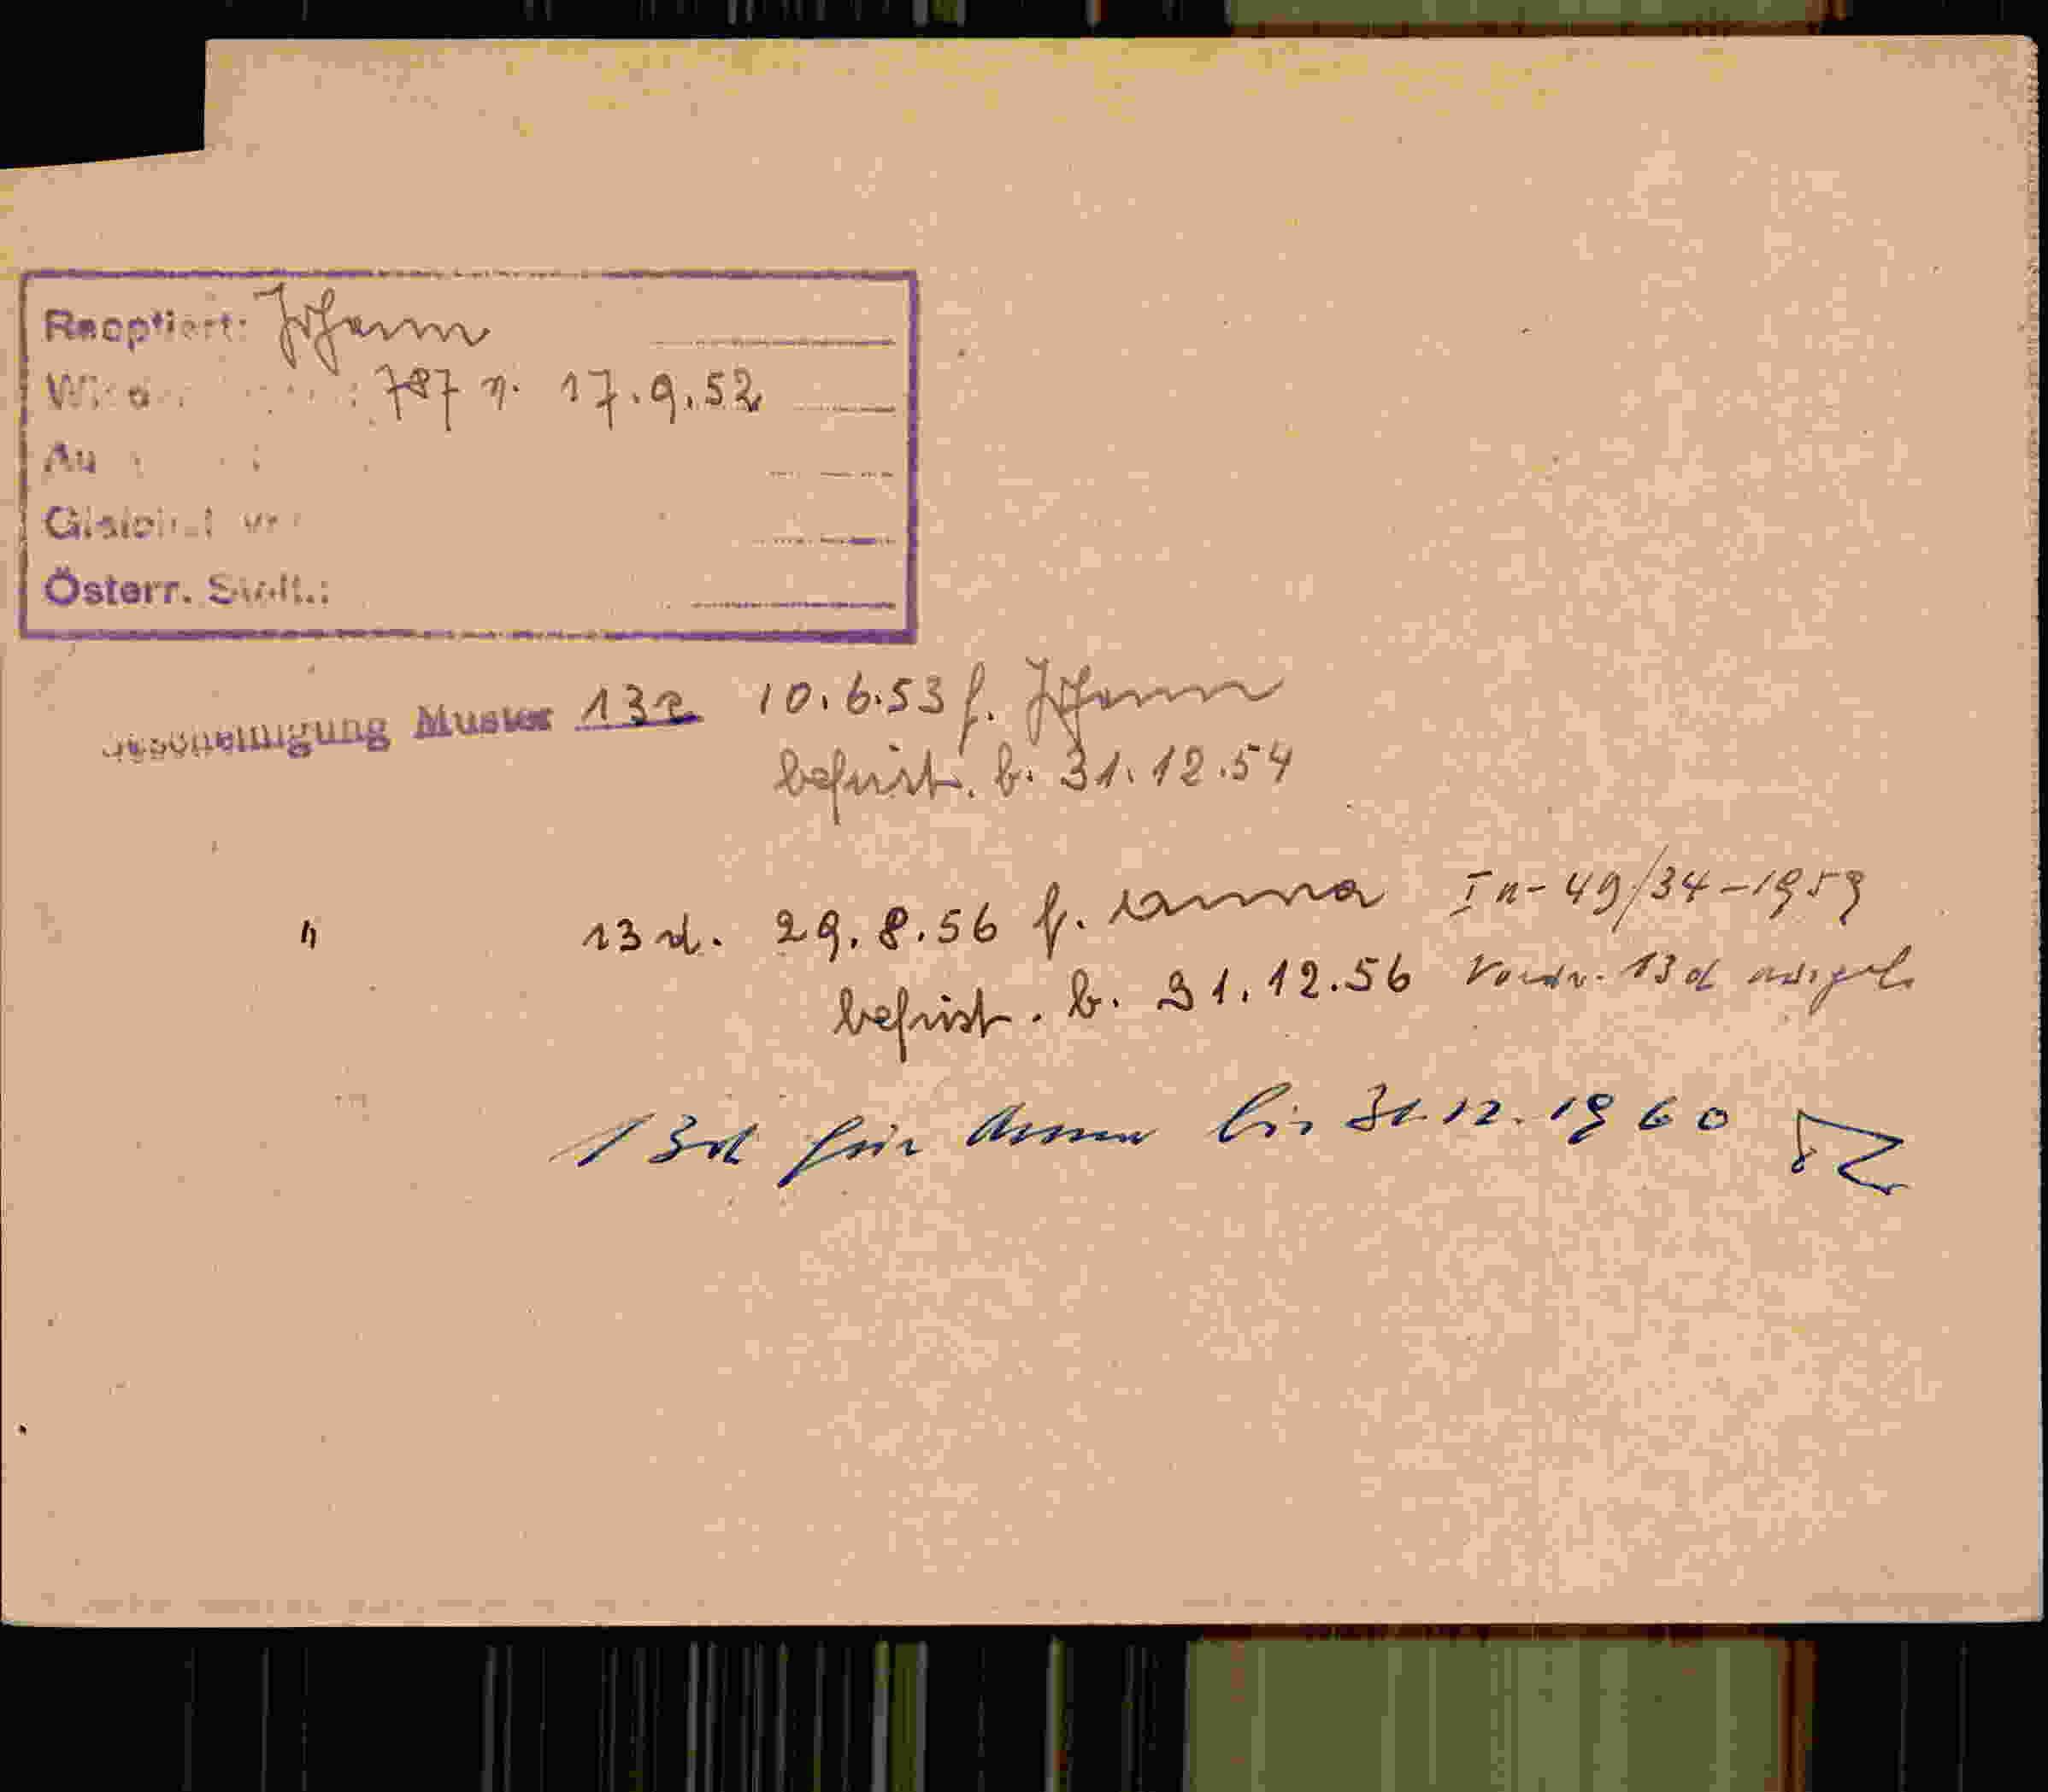 Reoptiert: Johann
787 v. 17.9.52
Au
Österr. Stdt.:
Bescheinigung Muster 13a 10.6.53 f. Johann
befrist. b. 31.12.54
" 13d. 29.8.56 f. Anna I n- 49/34-1959
befrist. b. 31.12.56 Vordr. 13d ausgef.
13d für Anna bis 31.12.1960